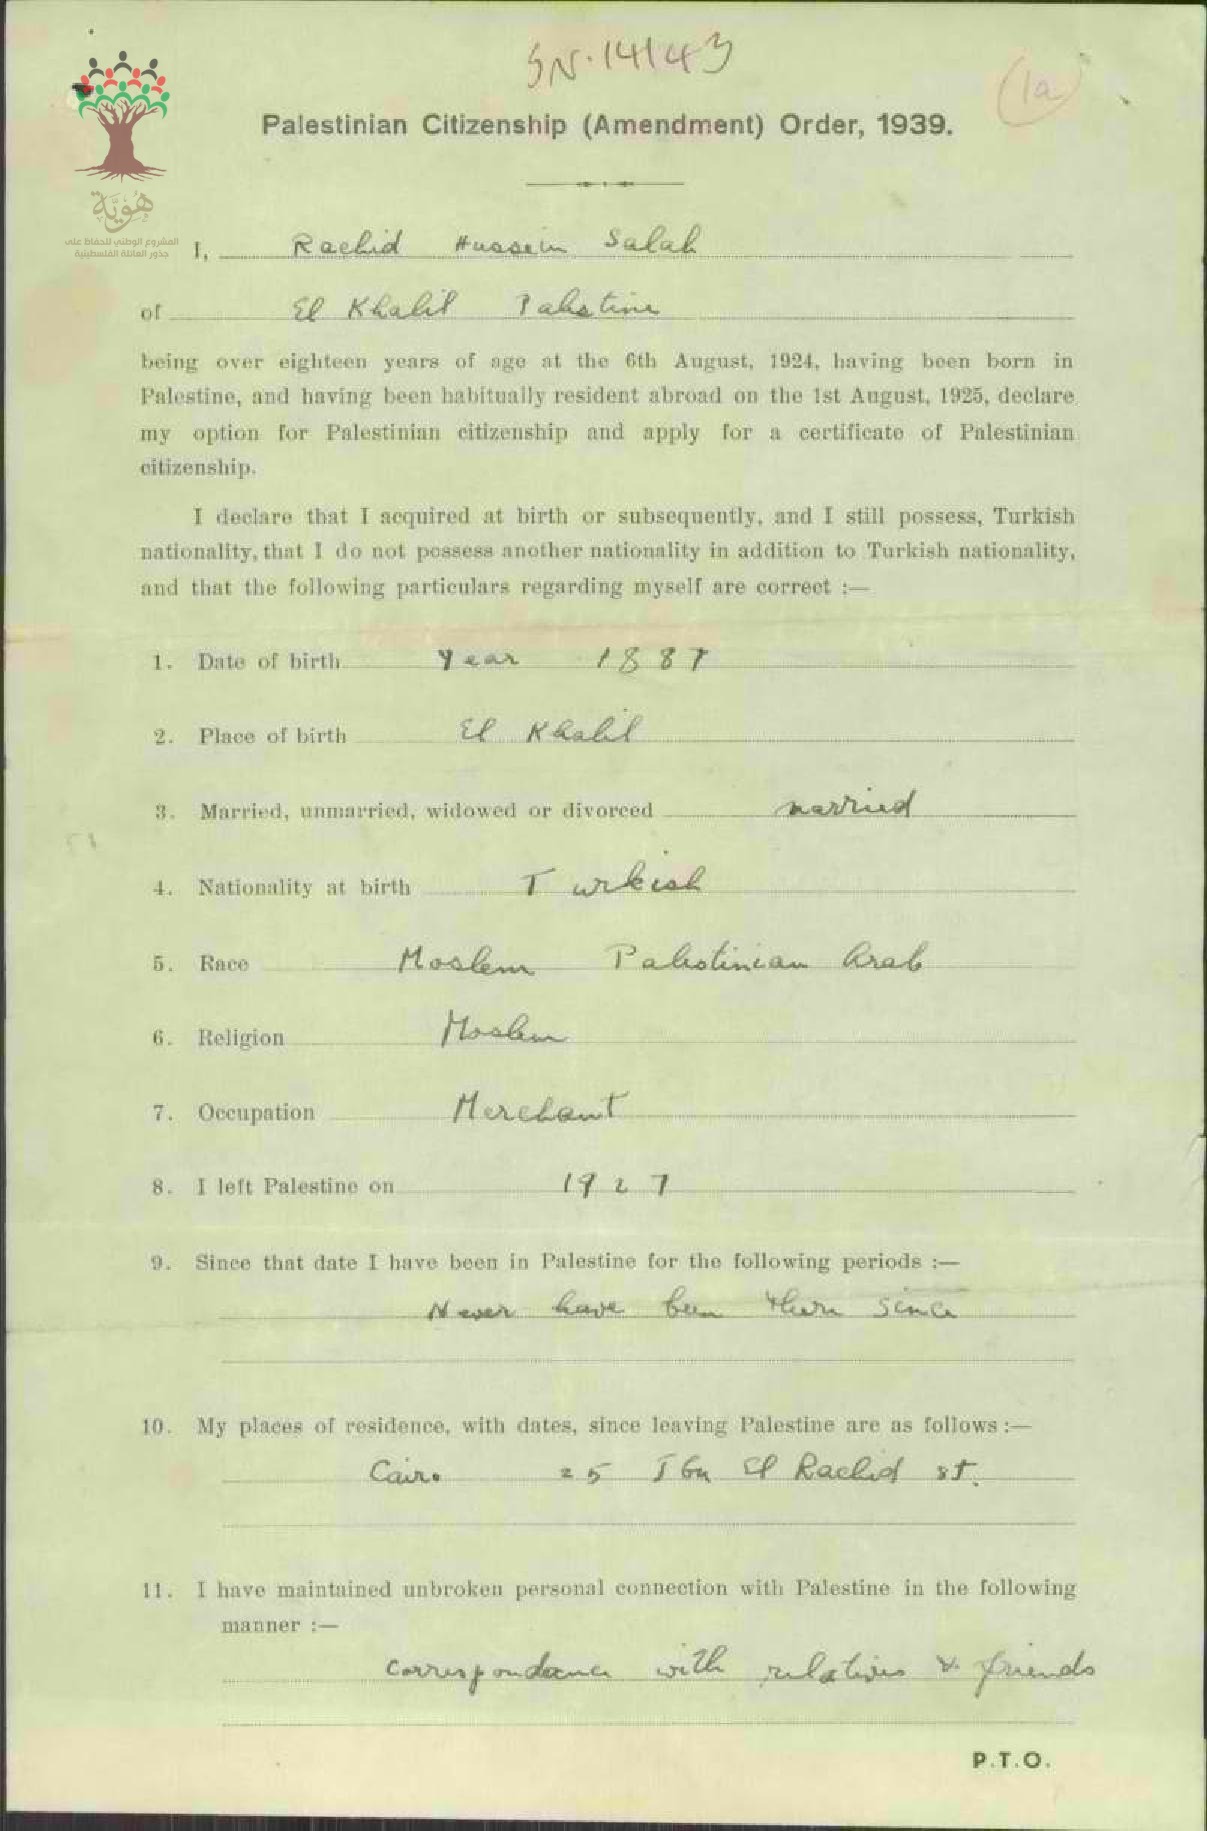 SN. 14143
(1a)
Palestinian Citizenship (Amendment) Order, 1939.
هُوِيَّة
المشروع الوطني للحفاظ على
جذور العائلة الفلسطينية
I, Rachid Hussein Salah
of El Khalil Palestine
being over eighteen years of age at the 6th August, 1924, having been born in
Palestine, and having been habitually resident abroad on the 1st August, 1925, declare
my option for Palestinian citizenship and apply for a certificate of Palestinian
citizenship.
I declare that I acquired at birth or subsequently, and I still possess, Turkish
nationality, that I do not possess another nationality in addition to Turkish nationality,
and that the following particulars regarding myself are correct :—
1. Date of birth Year 1887
2. Place of birth El Khalil
3. Married, unmarried, widowed or divorced married
4. Nationality at birth Turkish
5. Race Moslem Palestinian Arab
6. Religion Moslem
7. Occupation Merchant
8. I left Palestine on 1927
9. Since that date I have been in Palestine for the following periods :—
Never have been there since
10. My places of residence, with dates, since leaving Palestine are as follows :—
Cairo 25 Ibn El Rachid st.
11. I have maintained unbroken personal connection with Palestine in the following
manner :—
correspondence with relatives & friends
P.T.O.